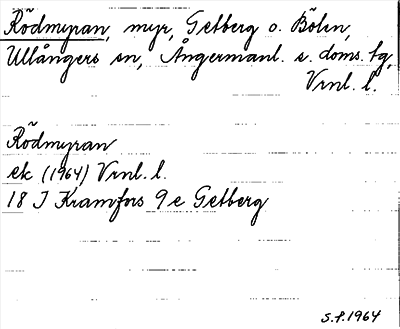 Rödmyran, myr, Getberg o. Bölen,
Ullångers sn, Ångermanl. s. doms. tg,
Vrnl. l.
Rödmyran
ek (1964) Vrnl. l.
18 J Kramfors 9 e Getberg
S.f. 1964